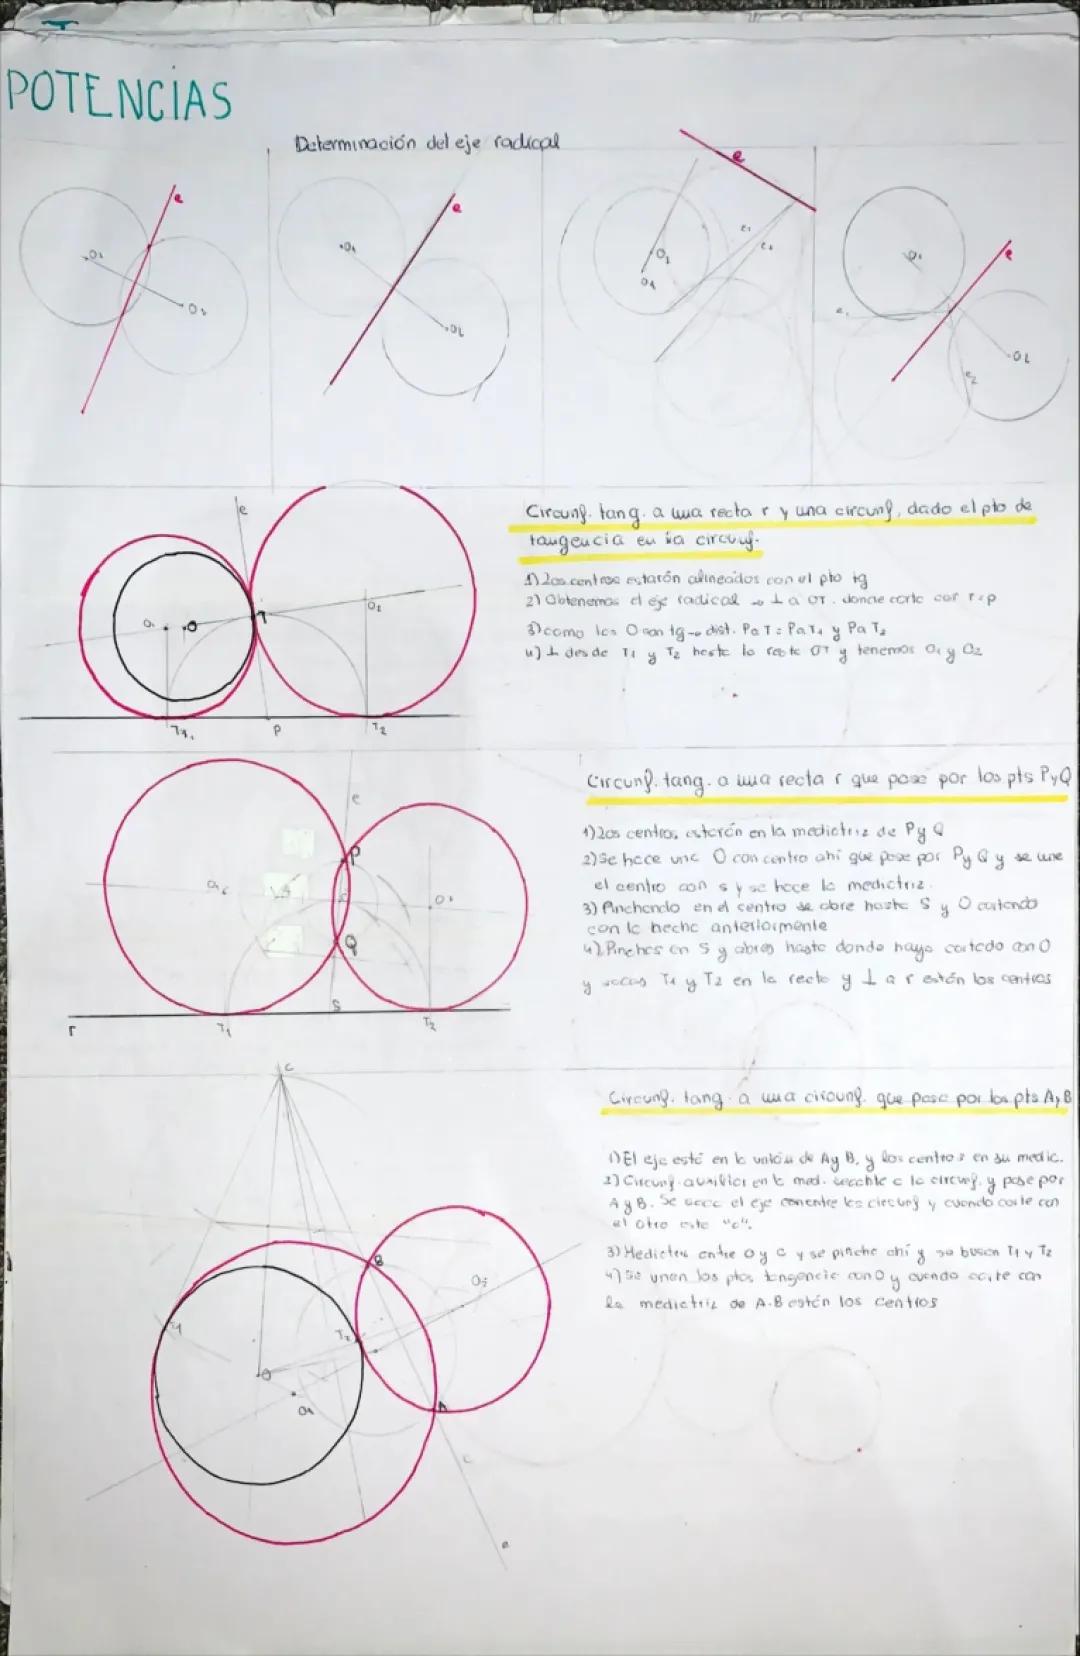 POTENCIAS
Determinación del eje radical
e
O1
O2
e
O1
O2
e
O1
O2
e1
e2
e
O1
O2
e1
e2
Circunf. tang. a una recta r y una circunf, dado el pto de
tangencia en la circunf.
1) Los centros estarán alineados con el pto tg
2) Obtenemos el eje radical → ⊥ a OT. donde corte con r = p
3) como los O son tg → dist. P a T = P a T1 y P a T2
4) ⊥ desde T1 y T2 hasta la recta OT y tenemos O1 y O2
e
O1
O
T
O2
T1
P
T2
Circunf. tang. a una recta r que pase por los pts P y Q
1) Los centros estarán en la mediatriz de P y Q
2) Se hace una O con centro ahí que pase por P y Q y se une
el centro con s y se hace la mediatriz.
3) Pinchando en el centro se abre hasta S y O cortando
con la hecha anteriormente
4) Pinchas en S y abres hasta donde haya cortado con O
y sacas T1 y T2 en la recta y ⊥ a r están los centros
e
P
O1
Q
S
r
T1
T2
Circunf. tang. a una circunf. que pase por los pts A y B
1) El eje está en la unión de A y B, y los centros en su medic.
2) Circunf. auxiliar en la med. secante a la circunf. y pase por
A y B. Se saca el eje con entre las circunf y cuando corte con
el otro este "c".
3) Mediatriz entre O y C y se pincha ahí y se buscan T1 y T2
4) Se unen los ptos tangencia con O y cuando corte con
la mediatriz de A-B están los centros
C
B
O2
T1
T2
O
O1
A
e